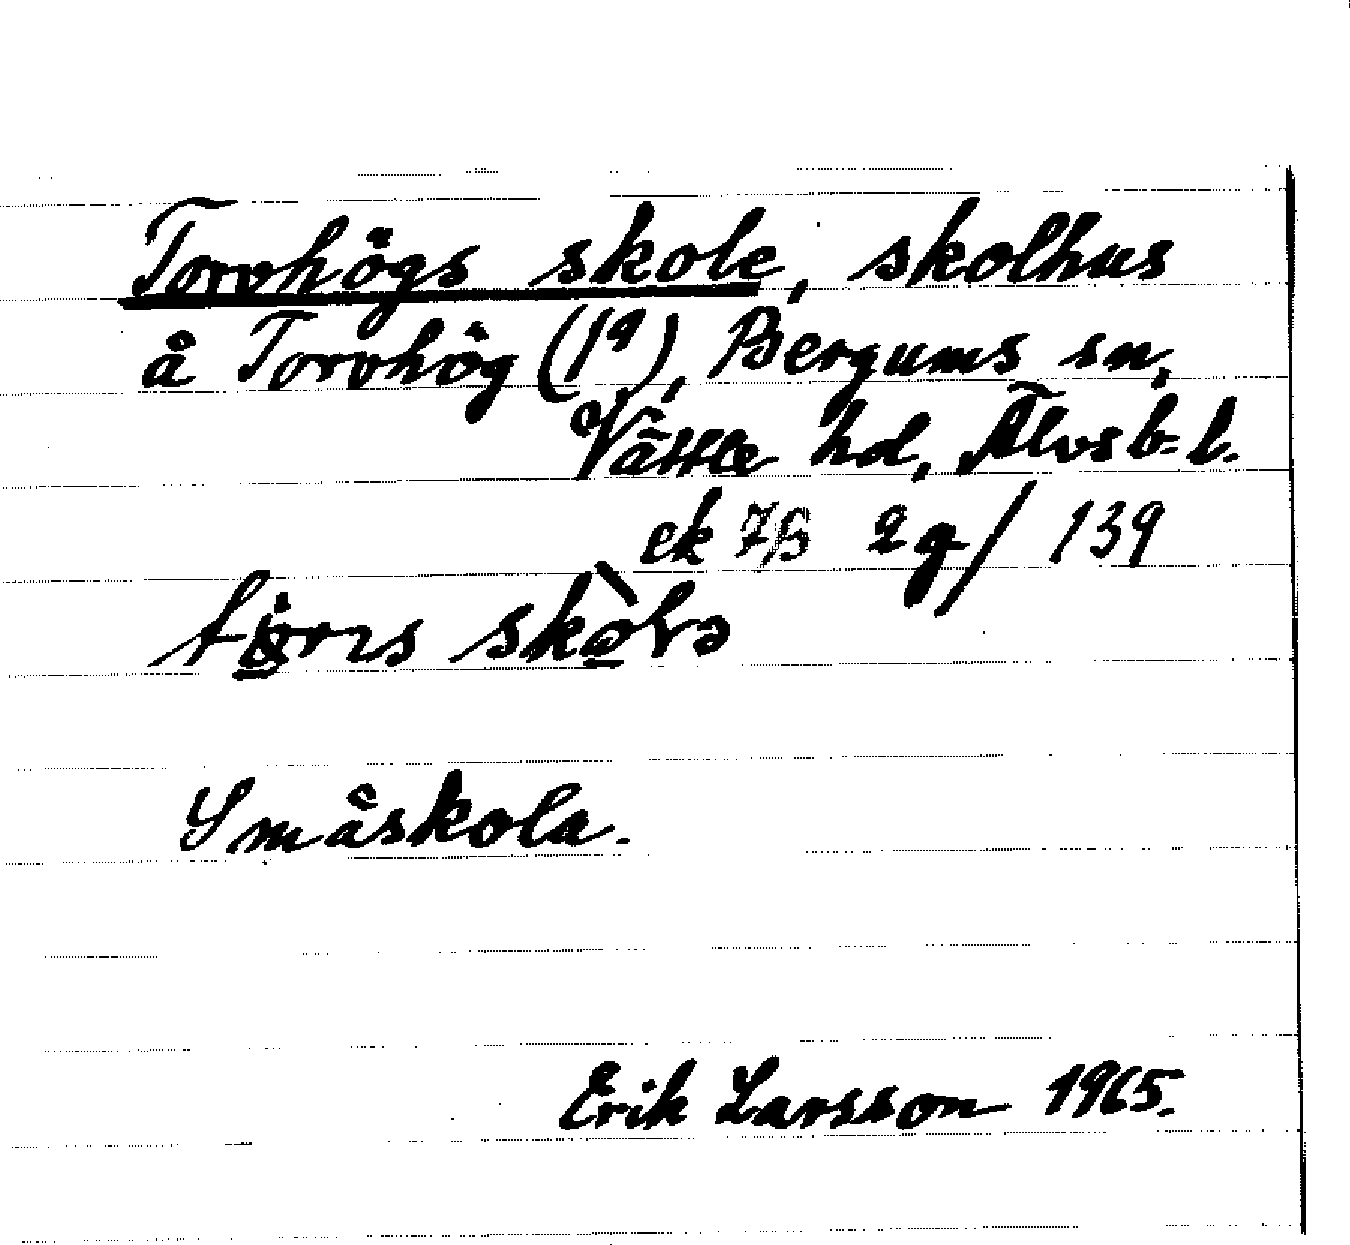 Torvhögs skole, skolhus
å Torvhög (1ª), Bergums sn,
Vättle hd, Älvsb. l.
ek 7B 2g/ 139
skò̲lə
Småskola.
Erik Larsson 1965.